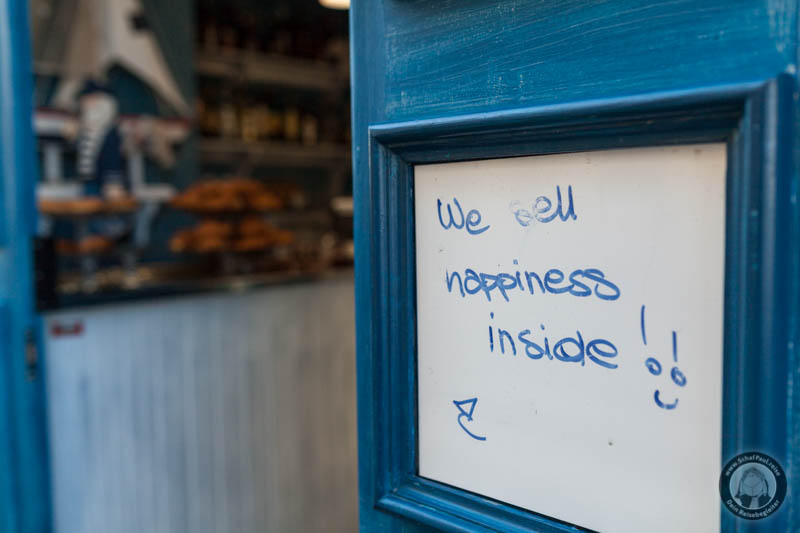 We sell
happiness
inside !!
www.SchafPaul.reise
Dein Reisebegleiter